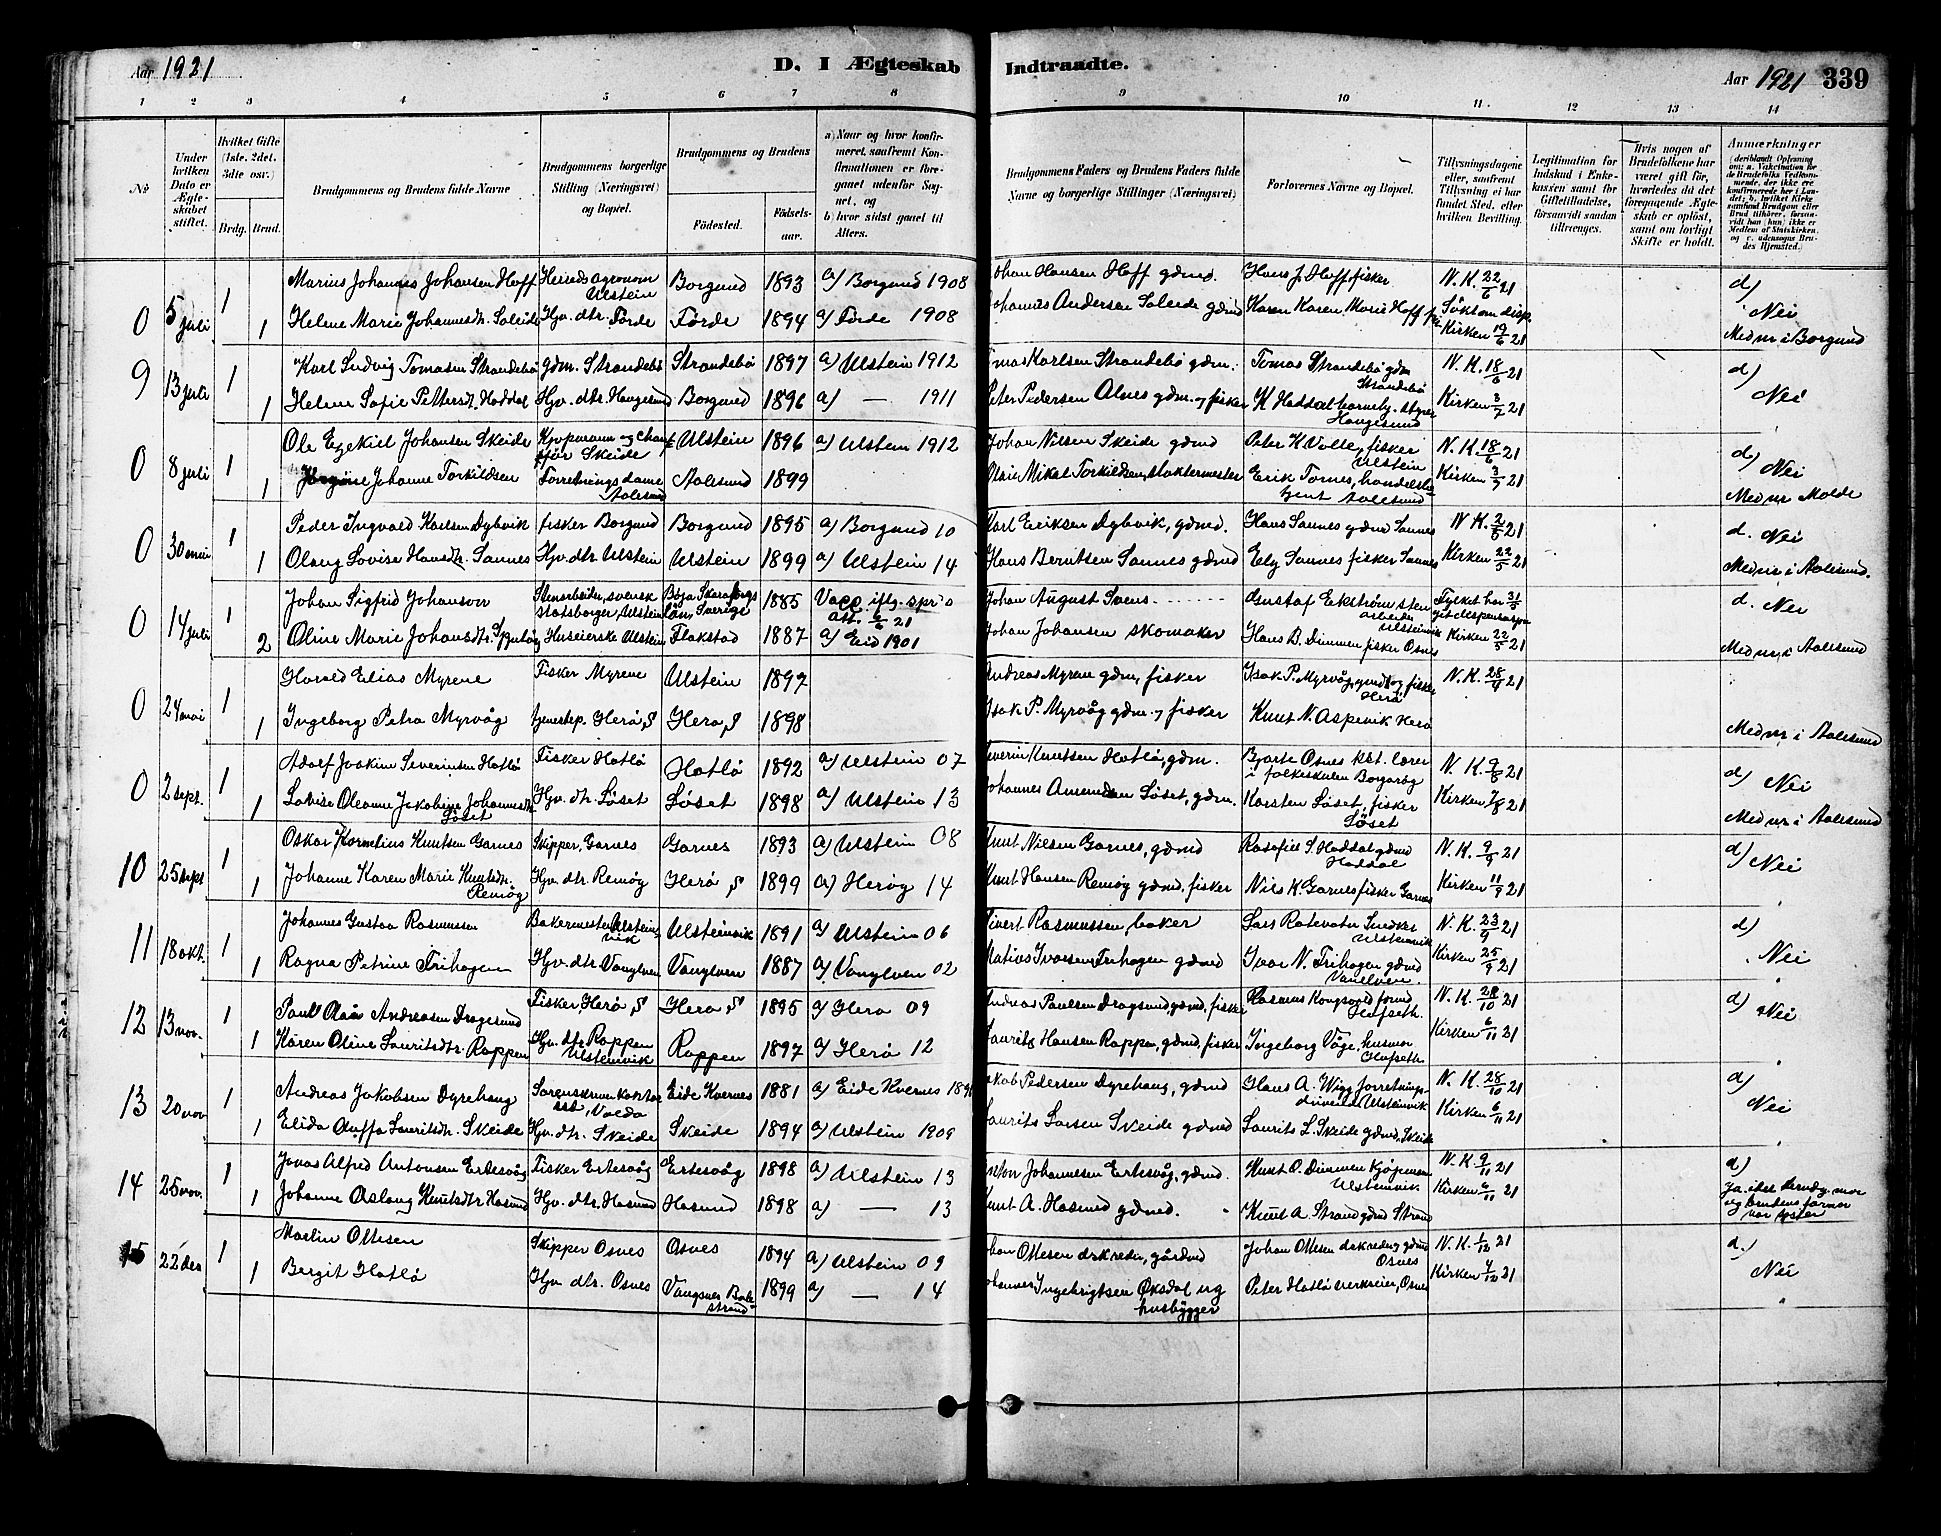 Aar 1921
D. I Ægteskab
Indtraadte.
Aar 1921 339
1 2 3 4 5 6 7 8 9 10 11 12 13 14
Nr
Under hvilken Dato er Ægteskabet stiftet.
Hvilket Gifte (1ste. 2det. 3dte osv.)
Brdg. Brud.
Brudgommens og Brudens fulde Navne
Brudgommens borgerlige Stilling (Næringsvei) og Bopæl.
Brudgommens og Brudens
Fødested.
Fødselsaar.
a) Naar og hvor konfirmeret, samfremt Konfirmationen er foregaaet udenfor Sognet, og
b) hvor sidst gaaet til Alters.
Brudgommens Faders og Brudens Faders fulde Navne og borgerlige Stillinger (Næringsvei)
Forlovernes Navne og Bopæl.
Tillysningsdagene eller, samfremt Tillysning ei har fundet Sted, efter hvilken Bevilling.
Legitimation for Indskud i Enkekassen samt for Giftetilladelse, forsaavidt saadan tiltrænges.
Hvis nogen af Brudefolkene har været gift før, hvorledes da det foregaaende Ægteskab er opløst, samt om lovligt Skifte er holdt.
Anmærkninger
0 5 juli 1 Marius Johannes Johansen Hoff Herredsagronom Ulstein Borgund 1893 a) Borgund 1908 Johan Hansen Hoff gdmd. Hans J. Hoff fisker N. K. 22/6 21 d) Nei
1 Helene Marie Johannesdtr. Soleide Hjv. dtr. Förde Förde 1894 a) Förde 1908 Johannes Andersen Soleide gdmd Karen Marie Hoff Kirken 19/6 21 Med nr i Borgund
9 13 juli 1 Karl Ludvig Tomasen Strandebö gdm. Strandebö Strandebö 1897 a) Ulstein 1912 Tomas Karlsen Strandebö gdm. Tomas Strandebö gdm Strandebö N. K. 18/6 21 d) Nei
1 Helene Sofie Pettersdt. Haddal Hjv. dtr. Haugesund Borgund 1896 a) — 1911 Peter Pedersen Alnes gdm. og fisker K Haddal Haugesund Kirken 3/7 21
0 8 juli 1 Ole Ezekiel Johansen Skeide Kjøpmann og chauffør Skeide Ulstein 1896 a) Ulstein 1912 Johan Nilsen Skeide gdmd Peter K Volle, fisker Ulstein N. K. 18/6 21 d) Nei
1 Johanne Torkildsen Forretningsdame Aalesund Aalesund 1899 Mikal Torkildsen, slaktermester Erik Tornes, Aalesund Kirken 3/7 21 Med nr Molde
0 30 mai 1 Peder Ingvald Karlsen Dybvik fisker Borgund Borgund 1895 a) Borgund 10 Karl Eriksen Dybvik, gdmd. Hans Sannes gdmd Sannes N K. 2/5 21 d. Nei
1 Olaug Lovise Hansdtr. Sannes Hjv. dtr. Ulstein Ulstein 1899 a) Ulstein 14 Hans Berntsen Sannes gdmd Ely Sannes fisker Sannes Kirken 22/5 21 Med nr i Aalesund.
0 14 juli 1 Johan Sigfrid Johanson Stenarbeider, svensk statsborger, Ulstein Böja Skaraborgs län, Sverige 1885 Vacc iflg. spr.o att. 6/6 21 Johan August Svens Gustaf Ekström stenarbeider Ulsteinvik Fylket har 31/5 git dispensasjon d. Nei
2 Oline Marie Johansdtr. Huseierske Ulstein Flakstad 1887 a) Eid 1901 Johan Johansen skomaker Hans B. Dimmen fisker Osnes Kirken 22/5 21 Med nr i Aalesund
0 24 mai 1 Harald Elias Myrene Fisker Myrene Ulstein 1897 Andreas Myren gdm, fisker Isak P. Myrvåg, gmd og fisker Herö N. K. 28/4 21
1 Ingeborg Petra Myrvåg tjenestep. Herö S Herö S 1898 Isak P. Myrvåg gdm. og fisker Knut N. Aspevik Herö Med nr i Aalesund
0 2 sept. 1 Adolf Joakim Severinsen Hatlö Fisker Hatlö Hatlö 1892 a) Ulstein 07 Severin Knutsen Hatlö, gdm. Bjarte Osnes kst. lærer i folkeskulen Borgarøy N. K. 9/8 21 d) Nei
1 Lovise Oleanne Jakobine Johannesdtr. Löset Hjv. dtr. Löset Löset 1898 a) Ulstein 13 Johannes Amundsen Löset, gdm. Karsten Löset, fisker Löset Kirken 7/8 21 Med nr i Aalesund
10 25 sept 1 Oskar Kornelius Knutsen Garnes Skipper, Garnes Garnes 1893 a) Ulstein 08 Knut Nilsen Garnes, gdmd Rasofiel S. Haddal gdmd Haddal N. K. 9/9 21 d) Nei
1 Johanne Karen Marie Knutsdtr. Remöy Hjv. dtr. Remöy Herö S 1899 a) Heröy 14 Knut Hansen Remöy gdmd, fisker Nils K. Garnes fisker Garnes Kirken 11/9 21
11 18 okt. 1 Johannes Gustav Rasmussen Bakermester Ulsteinvik Ulsteinvik 1891 a) Ulstein 06 Sivert Rasmussen, baker Lars Rotevatn Snedker Ulsteinvik N. K. 23/9 21 d) Nei
1 Ragna Petrine Frihagen Hjv. dtr. Vanylven Vanylven 1887 a) Vanylven 02 Matias Ivarsen Frihagen gdmd Ivar N. Frihagen gdmd Vanelven. Kirken 25/9 21
12 13 nov. 1 Paul Olai Andreasen Dragesund Fisker, Herö S Herö S 1895 a) Herö 09 Andreas Paulsen Dragsund gdmd, fisker Rasmus Kongsvold Hafseth. N. K. 28/10 21 d) Nei
1 Karen Oline Lauritsdtr. Rappen Hjv. dtr. Rappen Ulsteinvik Rappen 1897 a) Herö 12 Laurits Hansen Rappen, gdmd, fisker Ingeborg Våge, husmor Hafseth Kirken 6/11 21
13 20 nov 1 Andreas Jakobsen Dyrehaug Sorenskriverkontorist, Volda Eide Kvernes 1881 a) Eide Kvernes Jakob Pedersen Dyrehaug, gdmd Hans A. Wigg forretningsdrivende Ulsteinvik N. K. 28/10 21 d) Nei
1 Elida Auffa Lauritsdtr. Skeide Hjv. dtr. Skeide Skeide 1894 a) Ulstein 1909 Laurits Larsen Skeide gdmd Laurits L. Skeide gdmd, Skeide Kirken 6/11 21
14 25 nov. 1 Jonas Alfred Antonsen Ertesvåg Fisker Ertesvåg Ertesvåg 1898 a) Ulstein 13 Anton Johannesen Ertesvåg, gdmd. Knut O. Dimmen kjöpmann Ulsteinvik N. K. 9/11 21 d)
1 Johanne Aslaug Knutsdtr. Hasund Hjv. dtr. Hasund Hasund 1898 a) — 13 Knut A. Hasund gdmd. Knut A. Strand gdmd Strand Kirken 6/11 21 Ja. idet brudg. mor og brudens farmor var søster
15 22 des 1 Martin Ottesen Skipper Osnes Osnes 1894 a) Ulstein 09 Johan Ottesen gårdmd Johan Ottesen gdmd Osnes N. K. 1/12 21 d.) Nei
1 Bergit Hatlö Hjv. dtr. Osnes Vangsnes Balestrand 1899 a) — 14 Johannes Ingebrigtsen Öksdal husbygger Peter Hatlö verkseier, Osnes Kirken 4/12 21